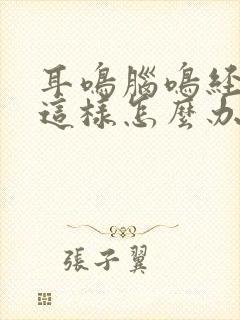 耳鳴腦鳴經
這樣怎麼办
張子翼